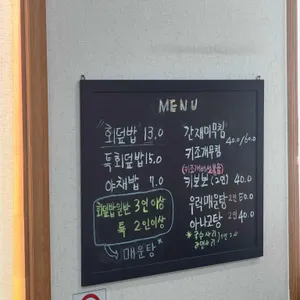 MENU
회덮밥 13.0
특회덮밥 15.0
야채밥 7.0
회덮밥일반 3인이상
특 2인이상
매운탕
간재미무침 40.0/60.0
키조개무침
키보보(2인) 40.0
우럭매운탕 2인 50.0
아나고탕 2인 40.0